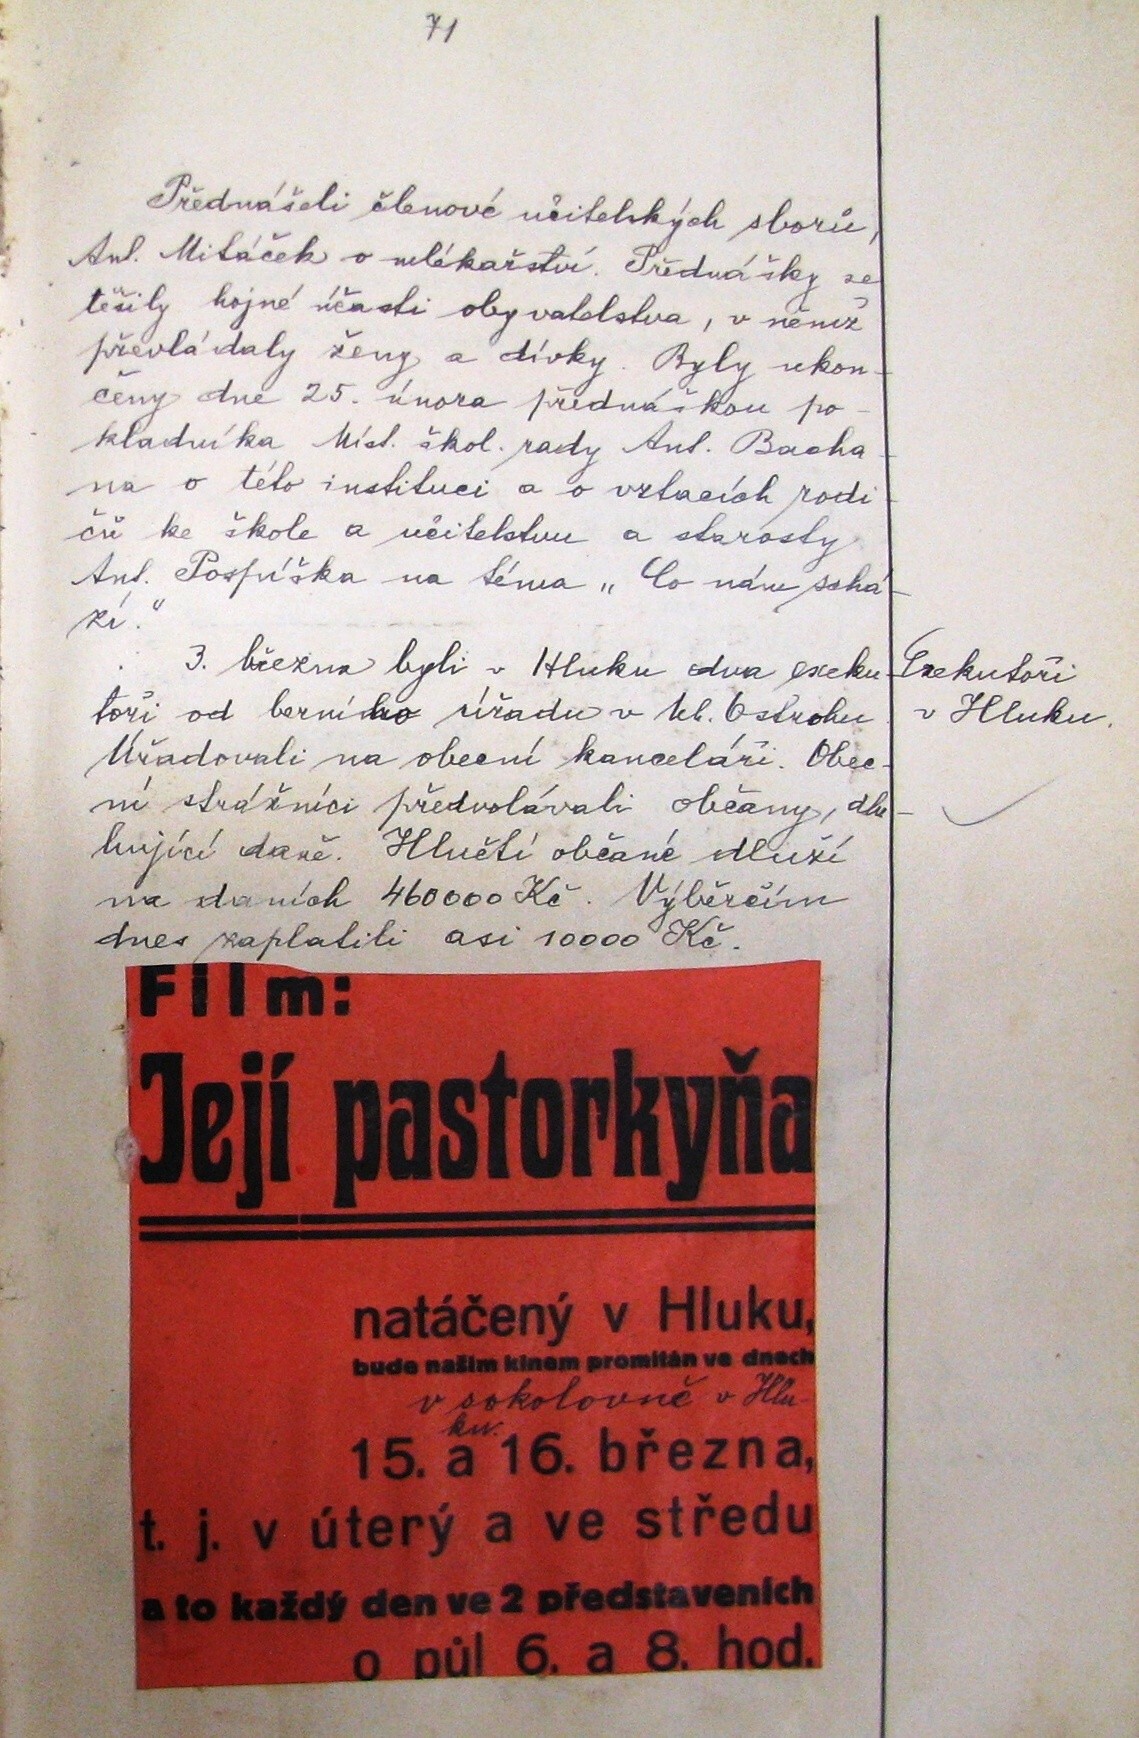 71
Přednášeli členové učitelských sborů,
Ant. Mitáček o mlékařství. Přednášky se
těšily hojné účasti obyvatelstva, v němž
převládaly ženy a dívky. Byly ukon-
čeny dne 25. února přednáškou po-
kladníka Míst. škol. rady Ant. Bacha-
na o této instituci a o vztazích rodi-
čů ke škole a učitelstvu a starosty
Ant. Pospíška na téma „Co nám schá-
zí.“
3. března byli v Hluku dva exeku-
Exekutoři
toři od berního úřadu v Uh. Ostrohu.
v Hluku.
Úřadovali na obecní kanceláři. Obec-
ní strážníci předvolávali občany, dlu-
hující daně. Hlučtí občané dluží
na daních 460000 Kč. Výběrčím
dnes zaplatili asi 10000 Kč.
Film:
Její pastorkyňa
natáčený v Hluku,
bude naším kinem promítán ve dnech
v sokolovně v Hlu-
ku.
15. a 16. března,
t. j. v úterý a ve středu
a to každý den ve 2 představeních
o půl 6. a 8. hod.